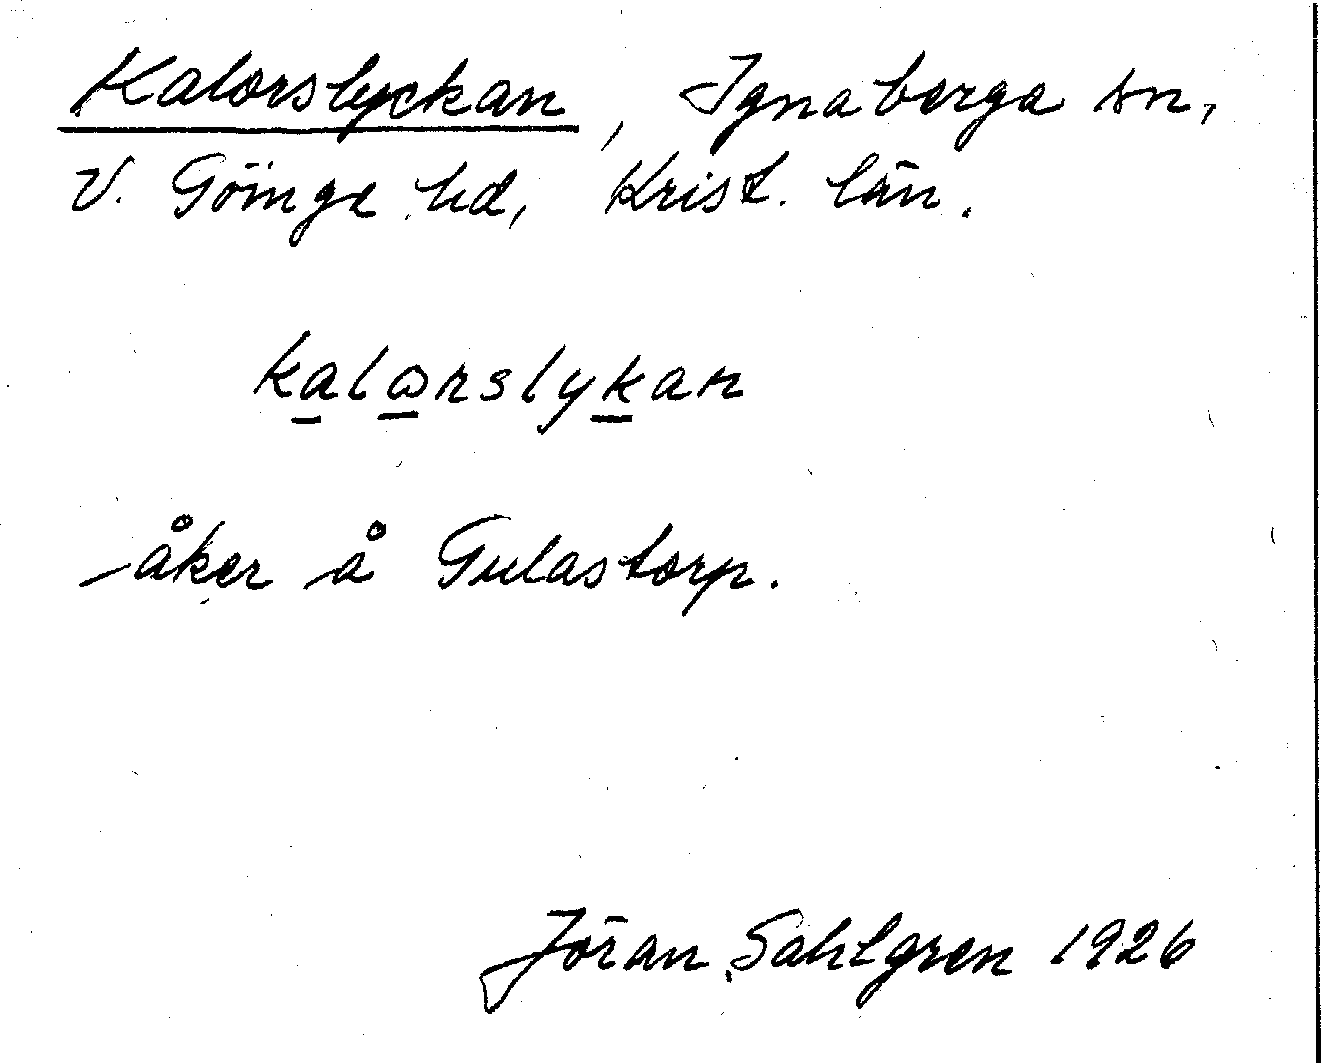 Kalorslyckan, Ignaberga sn,
V. Göinge hd, Krist. län.
kalωrslykan
åker å Gulastorp.
Jöran Sahlgren 1926